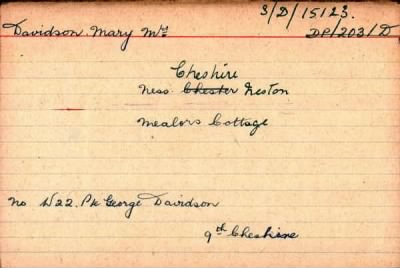 S/D/15123.
Davidson. Mary Mrs
DP/203/D
Cheshire
Ness Chester Neston
Mealors Cottage
No W22. Pte George Davidson
9th Cheshire